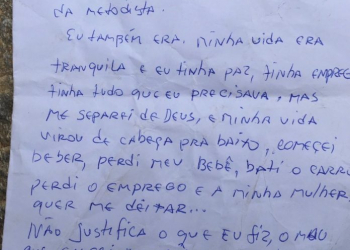 da metodista.
Eu também era. Minha vida era
tranquila e eu tinha paz, tinha empre
tinha tudo que eu precisava, mas
me separei de Deus, e minha vida
virou de cabeça pra baixo, começei
beber, perdi meu bebê, bati o carr
perdi o emprego e a minha mulher
quer me deitar...
Não justifica o que eu fiz, o meu